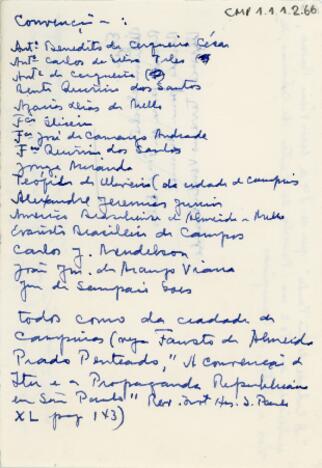 CMP 1.1.1.2.66
Convenção - :
Antº. Benedito de Cerqueira César
Antº. Carlos de Teles
Antº de Cerqueira
Bento Quirino dos Santos
Azarias Dias de Mello
Fco Eliseira
Fco José de Camargo Andrade
Fco Quirino dos Santos
Jorge Miranda
Teófilo de Oliveira (da cidade de Campinas
Alexandre Jeremias Junior
Americo Brasiliense de Almeida e Mello
Evaristo Brasileiro de Campos
Carlos J. Mendelson
João de Araujo Viana
de Sampaio Goes
todos como da cidade de
Campinas (veja Fausto de Almeida
Prado Penteado, "A Convenção de
Itu e a Propaganda Republicana
em São Paulo" Rev. Inst His. S. Paulo
XL pag 143)